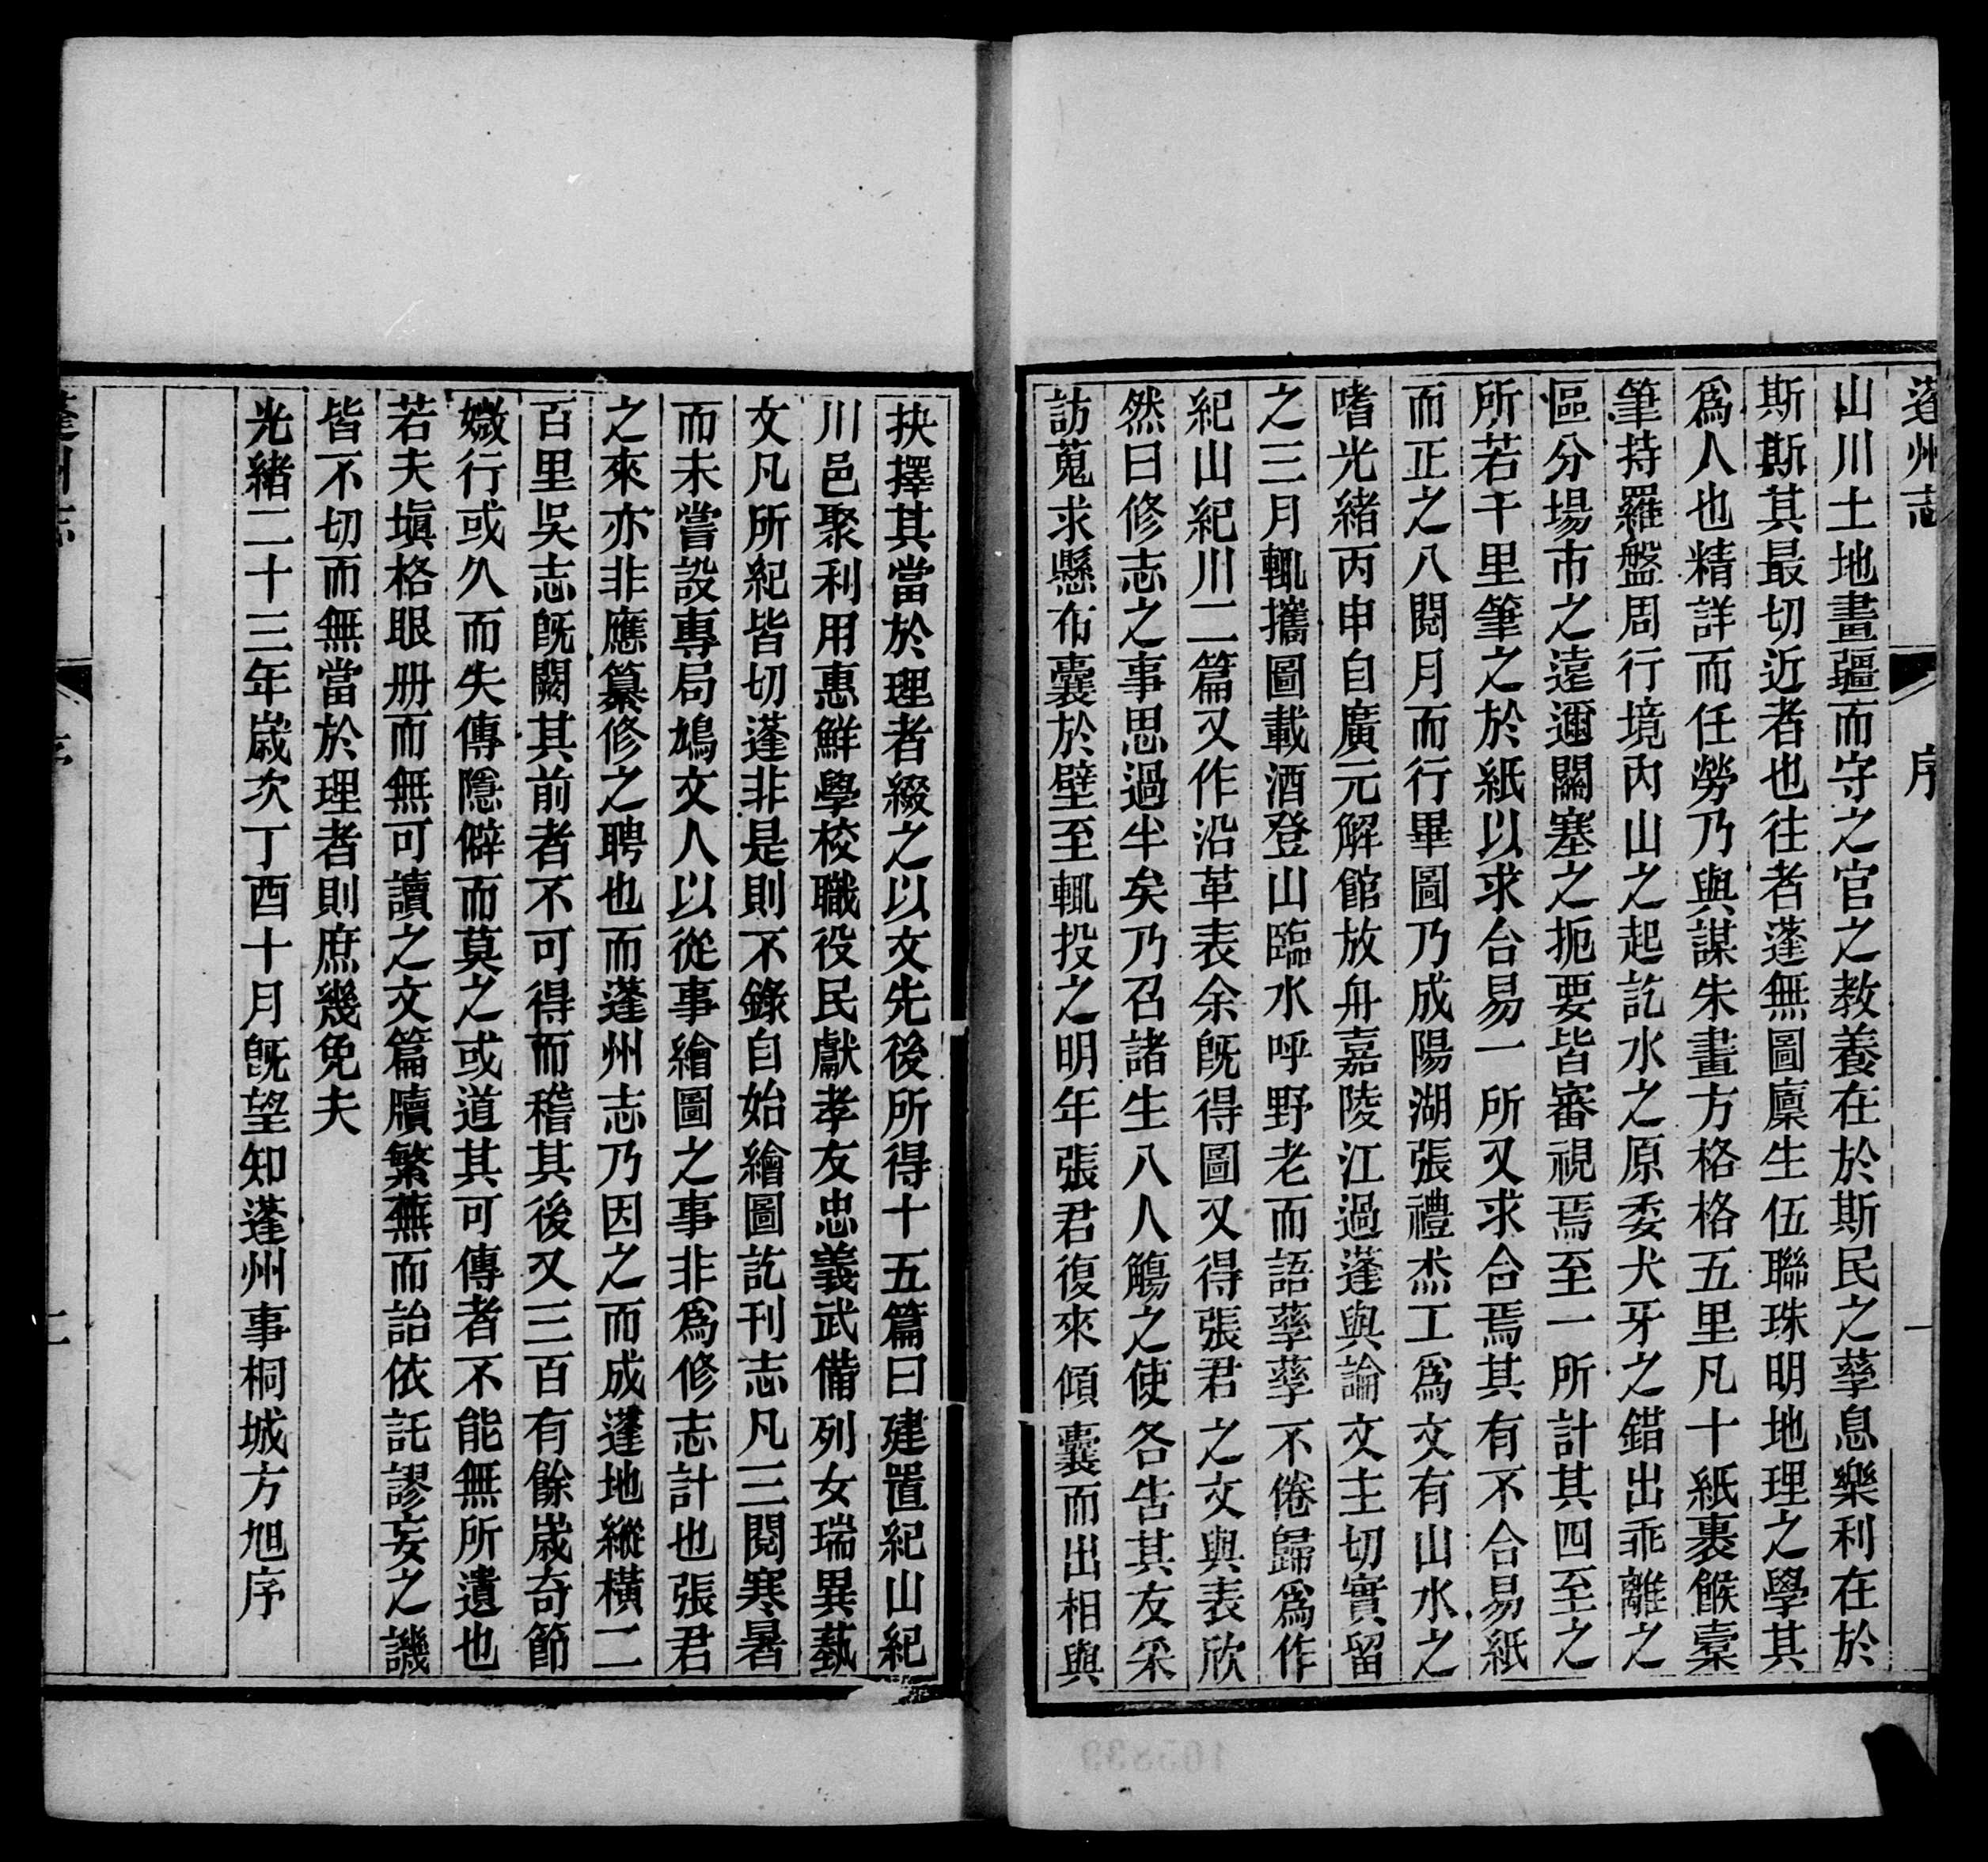 蓬州志 序 一
山川土地畫疆而守之官之教養在於斯民之孳息樂利在於
斯斯其最切近者也往者蓬無圖廩生伍聯珠明地理之學其
爲人也精詳而任勞乃與謀朱畫方格格五里凡十紙裹餱橐
筆持羅盤周行境內山之起訖水之原委犬牙之錯出乖離之
區分場市之遠邇關塞之扼要皆審視焉至一所計其四至之
所若干里筆之於紙以求合易一所又求合焉其有不合易紙
而正之八閱月而行畢圖乃成陽湖張禮杰工爲文有山水之
嗜光緒丙申自廣元解館放舟嘉陵江過蓬與論文主切實留
之三月輒攜圖載酒登山臨水呼野老而語孳孳不倦歸爲作
紀山紀川二篇又作沿革表余既得圖又得張君之文與表欣
然曰修志之事思過半矣乃召諸生八人觴之使各告其友采
訪蒐求懸布囊於壁至輒投之明年張君復來傾囊而出相與
抉擇其當於理者綴之以文先後所得十五篇曰建置紀山紀
川邑聚利用惠鮮學校職役民獻孝友忠義武備列女瑞異藝
文凡所紀皆切蓬非是則不錄自始繪圖訖刊志凡三閱寒暑
而未嘗設專局鳩文人以從事繪圖之事非爲修志計也張君
之來亦非應纂修之聘也而蓬州志乃因之而成蓬地縱橫二
百里吳志既闕其前者不可得而稽其後又三百有餘歲奇節
媺行或久而失傳隱僻而莫之或道其可傳者不能無所遺也
若夫塡格眼册而無可讀之文篇牘繁蕪而詒依託謬妄之譏
皆不切而無當於理者則庶幾免夫
光緒二十三年歲次丁酉十月既望知蓬州事桐城方旭序
蓬州志 序 二